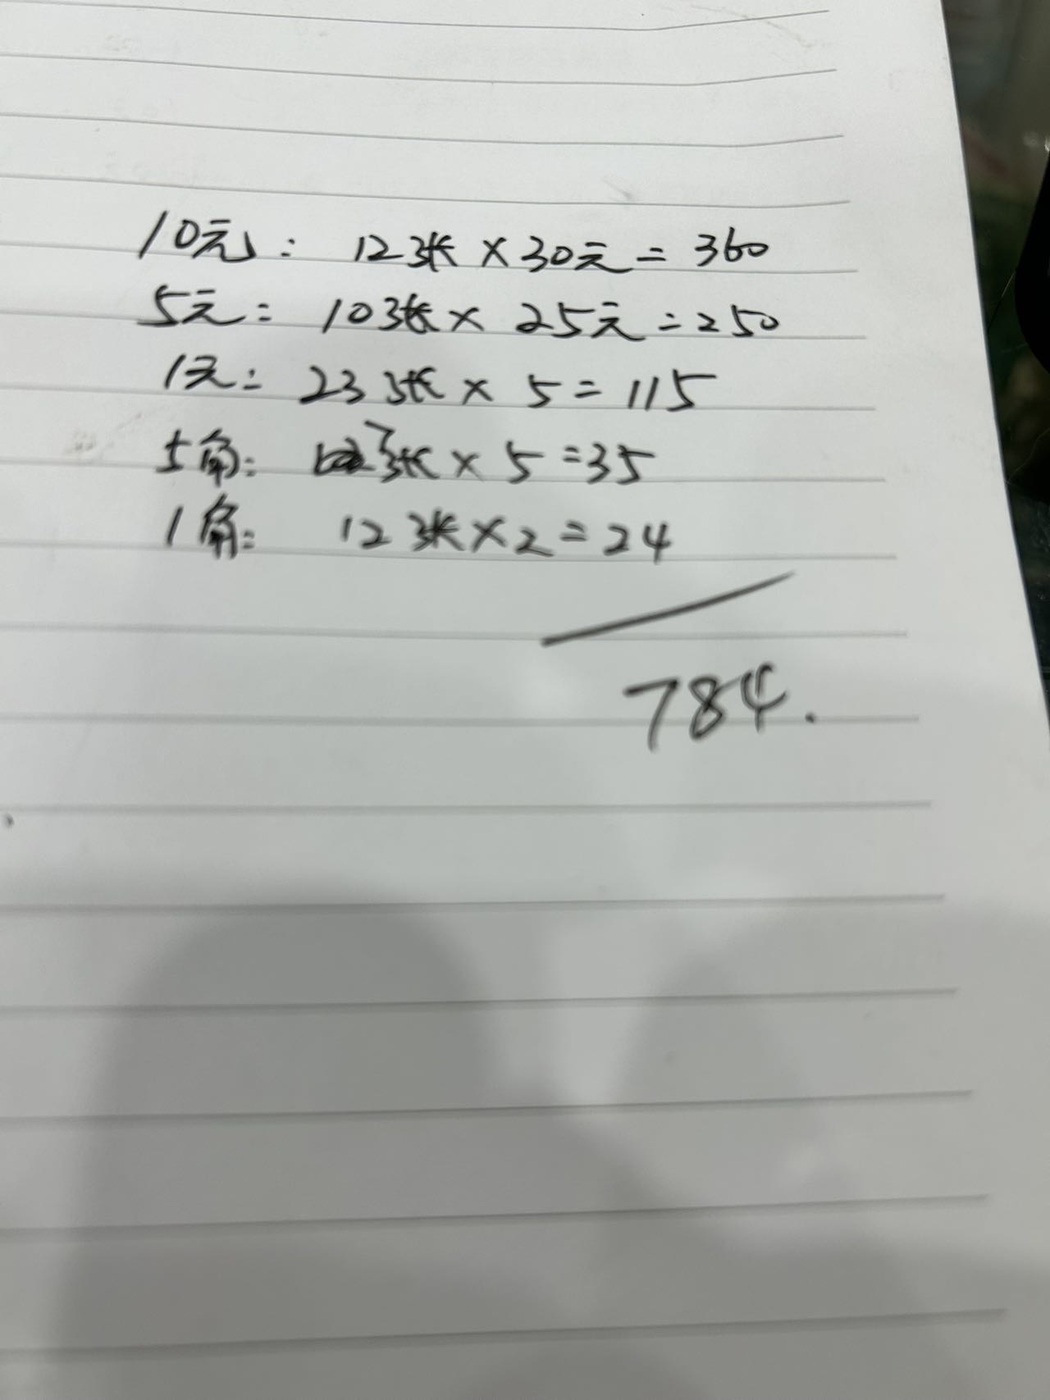 10元: 12张×30元=360
5元: 10张× 25元=250
1元: 23张× 5=115
5角: 7张×5=35
1角: 12张×2=24
784.